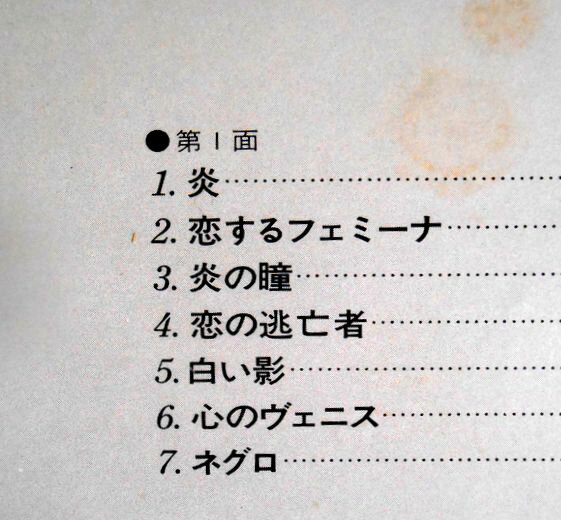 ●第1面
1. 炎
2. 恋するフェミーナ
3. 炎の瞳
4. 恋の逃亡者
5. 白い影
6. 心のヴェニス
7. ネグロ